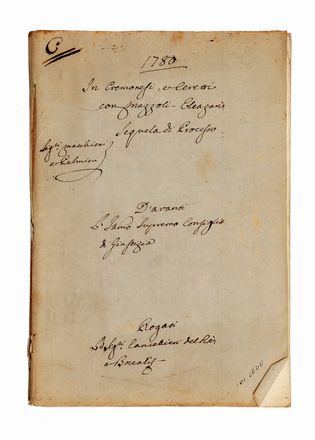 C
1780
In Cremonesi, e Ceretti
con Mazzoli - Eleazari
Sequela di Processo
Sigri
e Palmieri
D'avanti
L'Ssmo Supremo Consiglio
di Giustizia
Rogati
Li Sigri Cancellieri del Rè,
e